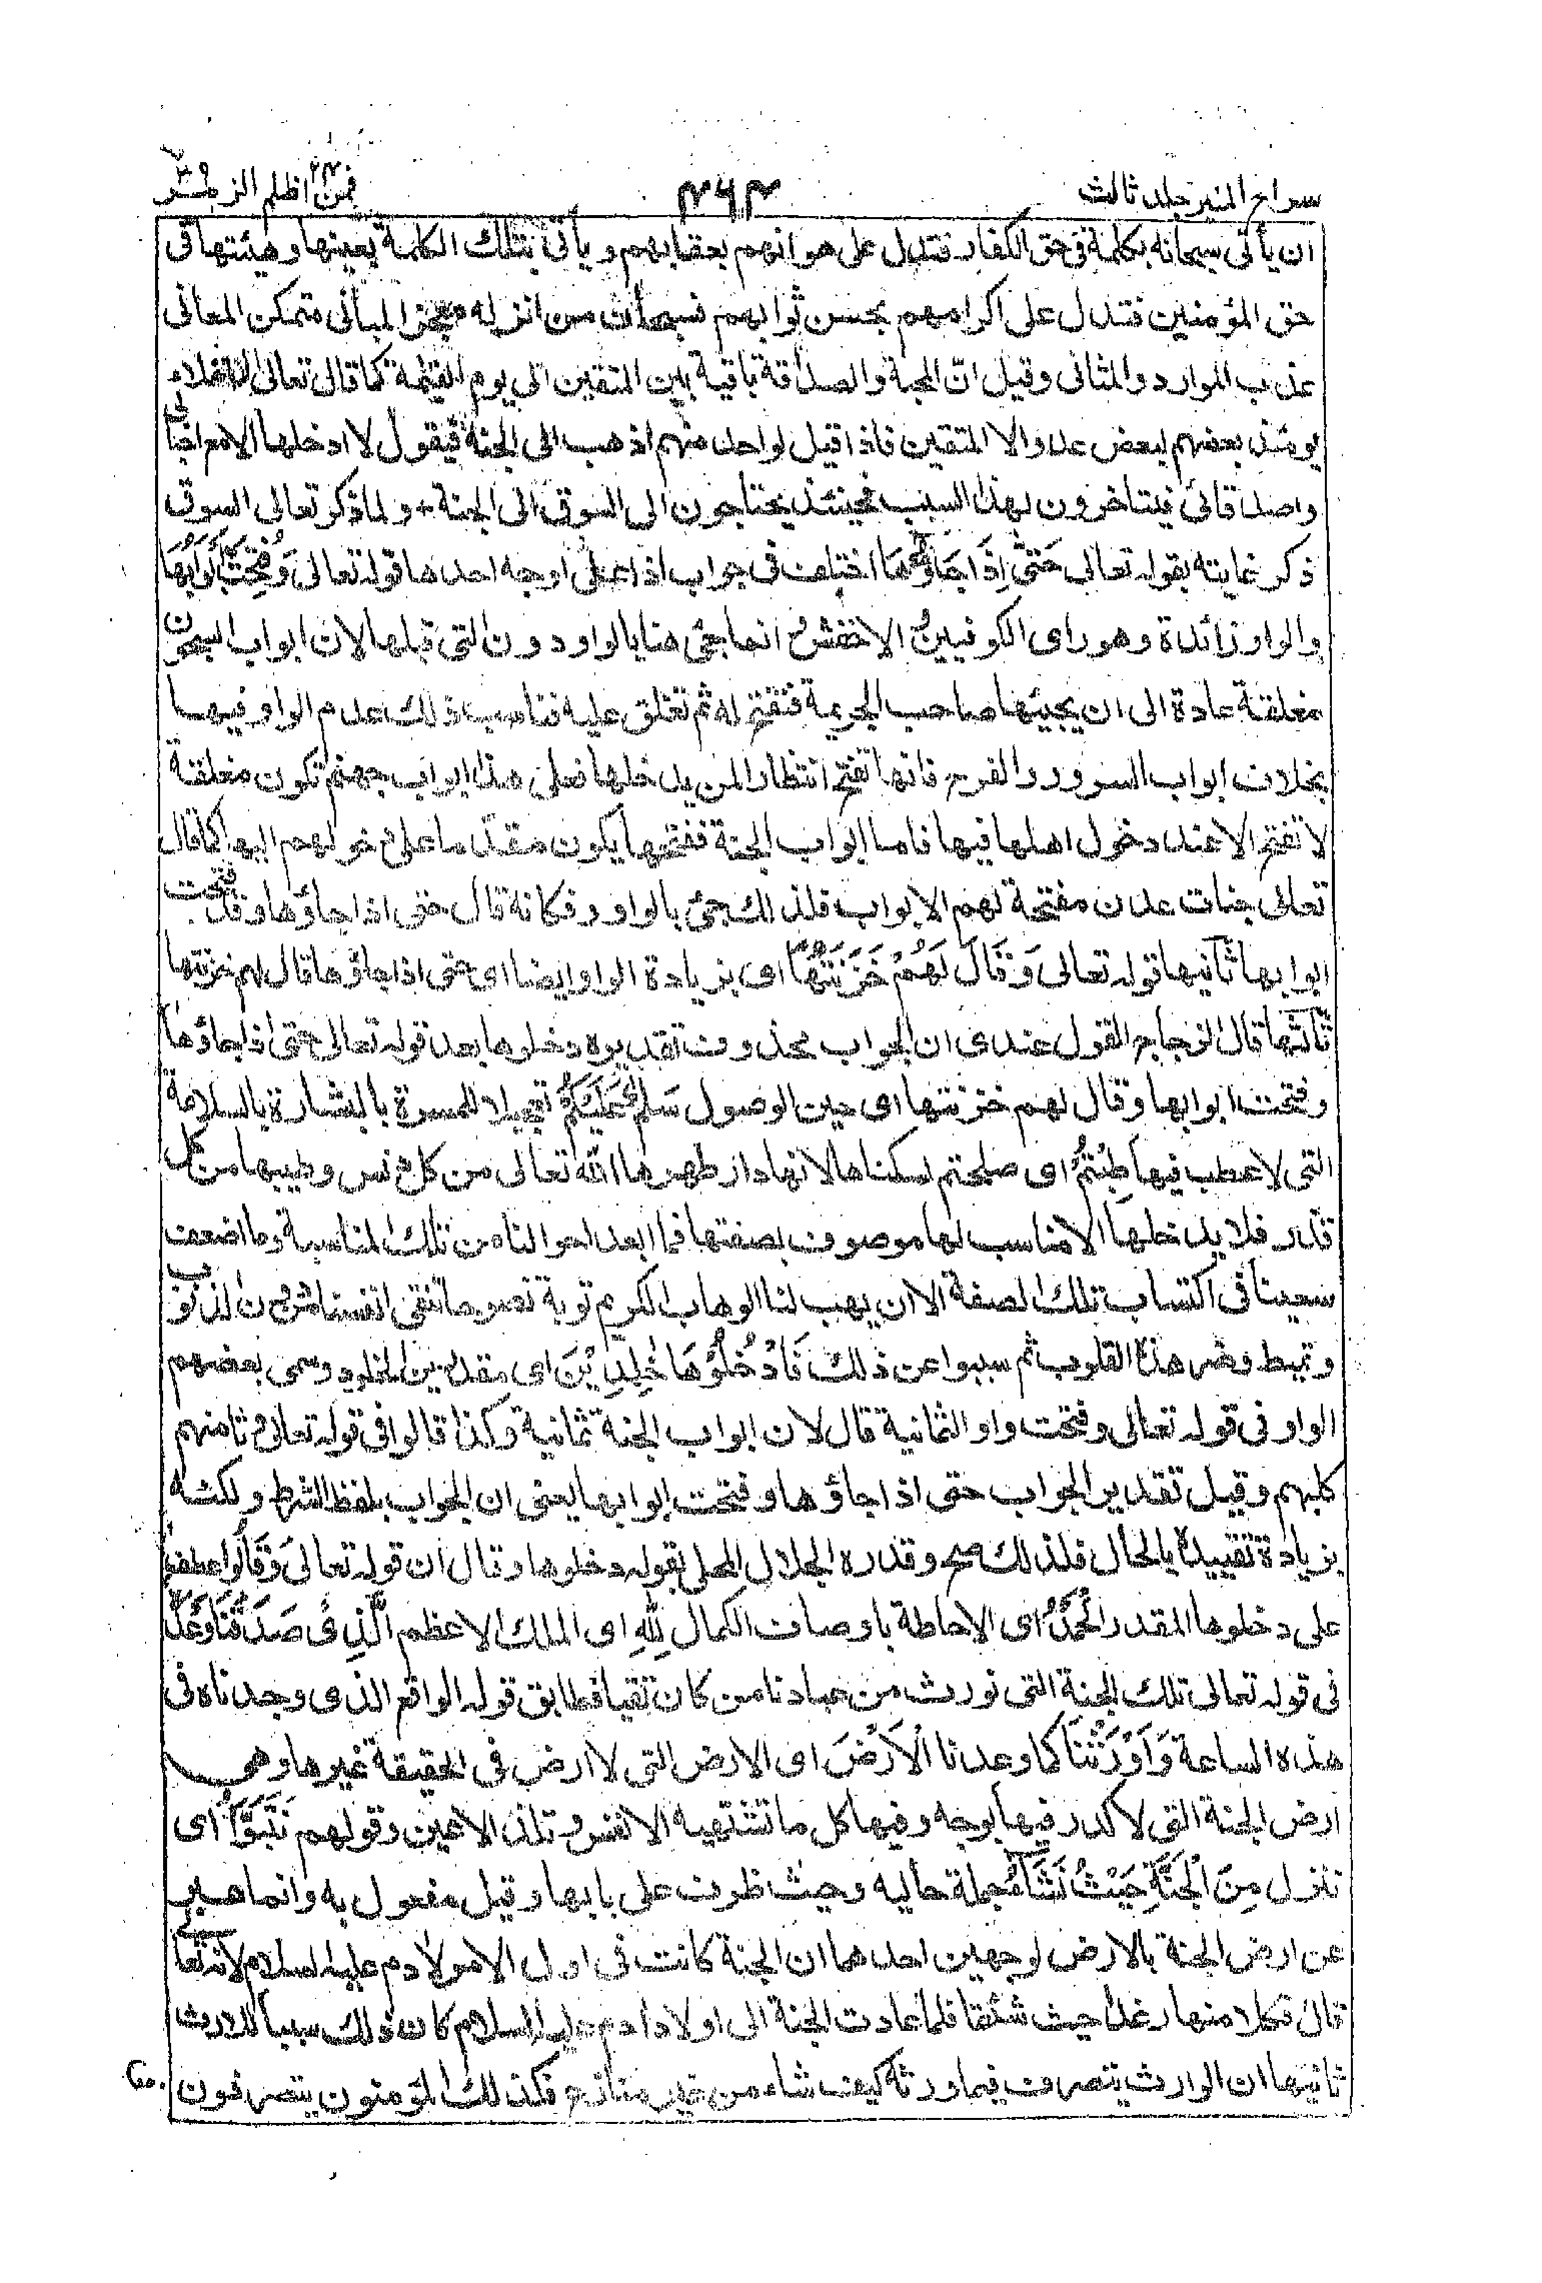 سراج المنير جلد ثالث
۴۶۳
فمن اظلم الزمر
ان يأتى سبحانه بكلمة فى حق الكفار فتدل على هوانهم بعقابهم ويأتى بتلك الكلمة بعينها وهيئتها فى
حق المؤمنين فتدل على اكرامهم بحسن ثوابهم فسبحان من انزله معجز المبانى متمكن المعانى
عذب الموارد والمثانى وقيل انّ المحبة والصداقة باقية بين المتقين الى يوم القيٰمة كما قال تعالى الاخلاء
يومئذ بعضهم لبعض عدو الا المتقين فاذا قيل لواحد منهم اذهب الى الجنة فيقول لا ادخلها الا مع احبائى
واصدقائى فيتاخرون لهذا السبب فحينئذ يحتاجون الى السوق الى الجنة + ولما ذكر تعالى السوق
ذكر غايته بقوله تعالى حَتّٰىٓ اِذَا جَآؤُهَا اختلف فى جواب اذا على اوجه احدها قوله تعالى وَفُتِحَتْ اَبْوَابُهَا
والواو زائدة وهو راى الكوفيين والاخفش وانما جئ هنا بالواو دون التى قبلها لان ابواب السجون
مغلقة عادة الى ان يجيئها صاحب الجريمة فتفتح له ثم تغلق عليه فناسب ذلك عدم الواو فيها
بخلاف ابواب السرور والفرح فانها تفتح انتظارا لمن يدخلها فعلى هذا ابواب جهنم تكون مغلقة
لا تفتح الا عند دخول اهلها فيها فاما ابواب الجنة ففتحها يكون مقدّما على دخولهم اليها كما قال
تعالى جنات عدن مفتحة لهم الابواب فلذلك جئ بالواو وفكانه قال حتى اذا جاؤها وقد فتحت
ابوابها ثانيها قوله تعالى وَقَالَ لَهُمْ خَزَنَتُهَا اى بزيادة الواو ايضا اى حتى اذا جاؤها قال لهم خزنتها
ثالثها قال الزجاج القول عندى ان الجواب محذوف تقديره دخلوها بعد قوله تعالى حتى اذا جاؤها
وفتحت ابوابها وقال لهم خزنتها اى حين الوصول سَلٰمٌ عَلَيْكُمْ تعجيلا للمسرة بالبشارة بالسلامة
التى لا عطب فيها طِبْتُمْ اى صلحتم لسكناها لانها دار طهرها الله تعالى من كل دنس وطيبها من كل
قذر فلا يدخلها الا مناسب لها موصوف بصفتها فما ابعد احوالنا من تلك المناسبة وما اضعف
سعينا فى اكتساب تلك الصفة الا ان يهب لنا الوهاب الكريم توبة نصوحا تنقى انفسنا من درن الذنوب
وتميط وضر هذه القلوب ثم سببوا عن ذلك فَادْخُلُوْهَا خٰلِدِيْنَ اى مقدرين الخلود وسمى بعضهم
الواو فى قوله تعالى وفتحت واو الثمانية قال لان ابواب الجنة ثمانية وكذا قالوا فى قوله تعالى وثامنهم
كلبهم وقيل تقدير الجواب حتى اذا جاؤها وفتحت ابوابها يعنى ان الجواب بلفظ الشرط ولكنه
بزيادة تقييده بالحال فلذلك صح وقدره الجلال المحلى بقوله دخلوها وقال ان قوله تعالى وَقَالُوا عطف
على دخلوها المقدر الْحَمْدُ اى الاحاطة باوصاف الكمال لِلّٰهِ اى الملك الاعظم الَّذِىْ صَدَقَنَا وَعْدَهٗ
فى قوله تعالى تلك الجنة التى نورث من عبادنا من كان تقيا فطابق قوله الواقع الذى وجدناه فى
هذه الساعة وَاَوْرَثَنَا كما وعدنا الْاَرْضَ اى الارض التى لا ارض فى الحقيقة غيرها وهى
ارض الجنة التى لا كدر فيها بوجه وفيها كل ما تشتهيه الانفس وتلذ الاعين وقولهم نَتَبَوَّاُ اى
ننزل مِنَ الْجَنَّةِ حَيْثُ نَشَآءُ جملة حاليه وحيث ظرف على بابها وقيل مفعول به وانما عبر
عن ارض الجنة بالارض لوجهين احدهما ان الجنة كانت فى اول الامر لآدم عليه السلام لانه تعالى
قال فكلا منها رغدا حيث شئتما فلما عادت الجنة الى اولاد ادم عليه السلام كان ذلك سببا للارث
ثانيها ان الوارث يتصرف فيما ورثه كيف شاء من غير منازع فكذلك المؤمنون يتصرفون